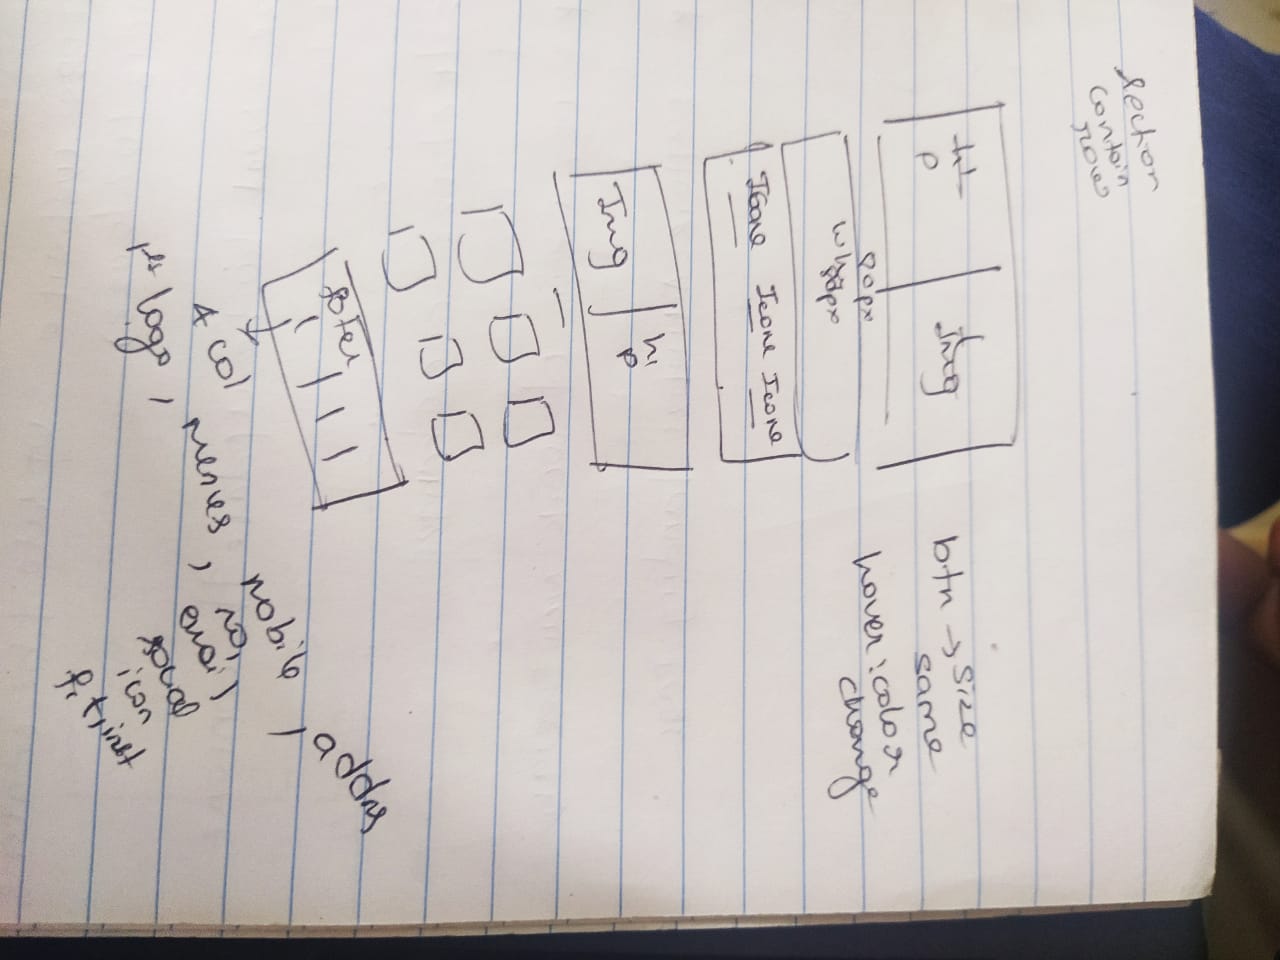 section
contain
row
h1
p
Img
btn → size
same
hover : color
change
80px
80px
Icone Icone Icone
Img
h1
p
footer
4 col
1st logo, menues, mobile
no,
email
social
icon
f, t, inst
, addrs